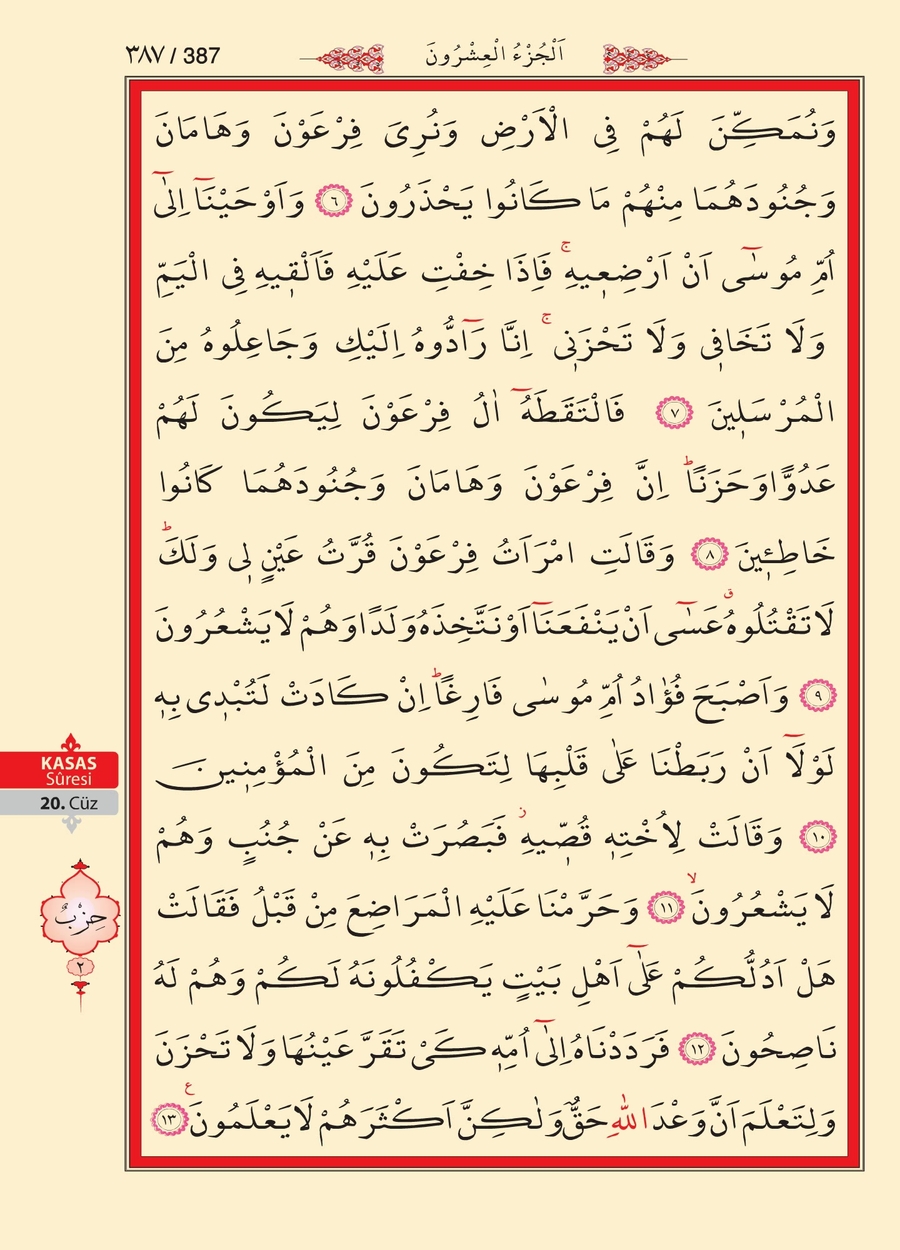 ٣٨٧ / 387
اَلْجُزْءُ الْعِشْرُونَ
وَنُمَكِّنَ لَهُمْ فِى الْاَرْضِ وَنُرِىَ فِرْعَوْنَ وَهَامَانَ
وَجُنُودَهُمَا مِنْهُمْ مَا كَانُوا يَحْذَرُونَ ﴿٦﴾ وَاَوْحَيْنَٓا اِلٰٓى
اُمِّ مُوسٰٓى اَنْ اَرْضِعٖيهِۚ فَاِذَا خِفْتِ عَلَيْهِ فَاَلْقٖيهِ فِى الْيَمِّ
وَلَا تَخَافٖى وَلَا تَحْزَنٖىۚ اِنَّا رَٓادُّوهُ اِلَيْكِ وَجَاعِلُوهُ مِنَ
الْمُرْسَلٖينَ ﴿٧﴾ فَالْتَقَطَهُٓ اٰلُ فِرْعَوْنَ لِيَكُونَ لَهُمْ
عَدُوًّا وَحَزَنًاؕ اِنَّ فِرْعَوْنَ وَهَامَانَ وَجُنُودَهُمَا كَانُوا
خَاطِـٖٔينَ ﴿٨﴾ وَقَالَتِ امْرَاَتُ فِرْعَوْنَ قُرَّتُ عَيْنٍ لٖى وَلَكَؕ
لَا تَقْتُلُوهُࣗ عَسٰٓى اَنْ يَنْفَعَنَٓا اَوْ نَتَّخِذَهُ وَلَدًا وَهُمْ لَا يَشْعُرُونَ
﴿٩﴾ وَاَصْبَحَ فُؤٰادُ اُمِّ مُوسٰى فَارِغًاؕ اِنْ كَادَتْ لَتُبْدٖى بِهٖ
لَوْلَٓا اَنْ رَبَطْنَا عَلٰى قَلْبِهَا لِتَكُونَ مِنَ الْمُؤْمِنٖينَ
﴿١٠﴾ وَقَالَتْ لِاُخْتِهٖ قُصّٖيهِؗ فَبَصُرَتْ بِهٖ عَنْ جُنُبٍ وَهُمْ
لَا يَشْعُرُونَۙ ﴿١١﴾ وَحَرَّمْنَا عَلَيْهِ الْمَرَاضِعَ مِنْ قَبْلُ فَقَالَتْ
هَلْ اَدُلُّكُمْ عَلٰٓى اَهْلِ بَيْتٍ يَكْفُلُونَهُ لَكُمْ وَهُمْ لَهُ
نَاصِحُونَ ﴿١٢﴾ فَرَدَدْنَاهُ اِلٰٓى اُمِّهٖ كَىْ تَقَرَّ عَيْنُهَا وَلَا تَحْزَنَ
وَلِتَعْلَمَ اَنَّ وَعْدَ اللّٰهِ حَقٌّ وَلٰكِنَّ اَكْثَرَهُمْ لَا يَعْلَمُونَࣖ ﴿١٣﴾
KASAS
Sûresi
20. Cüz
حِزْبٌ
٢